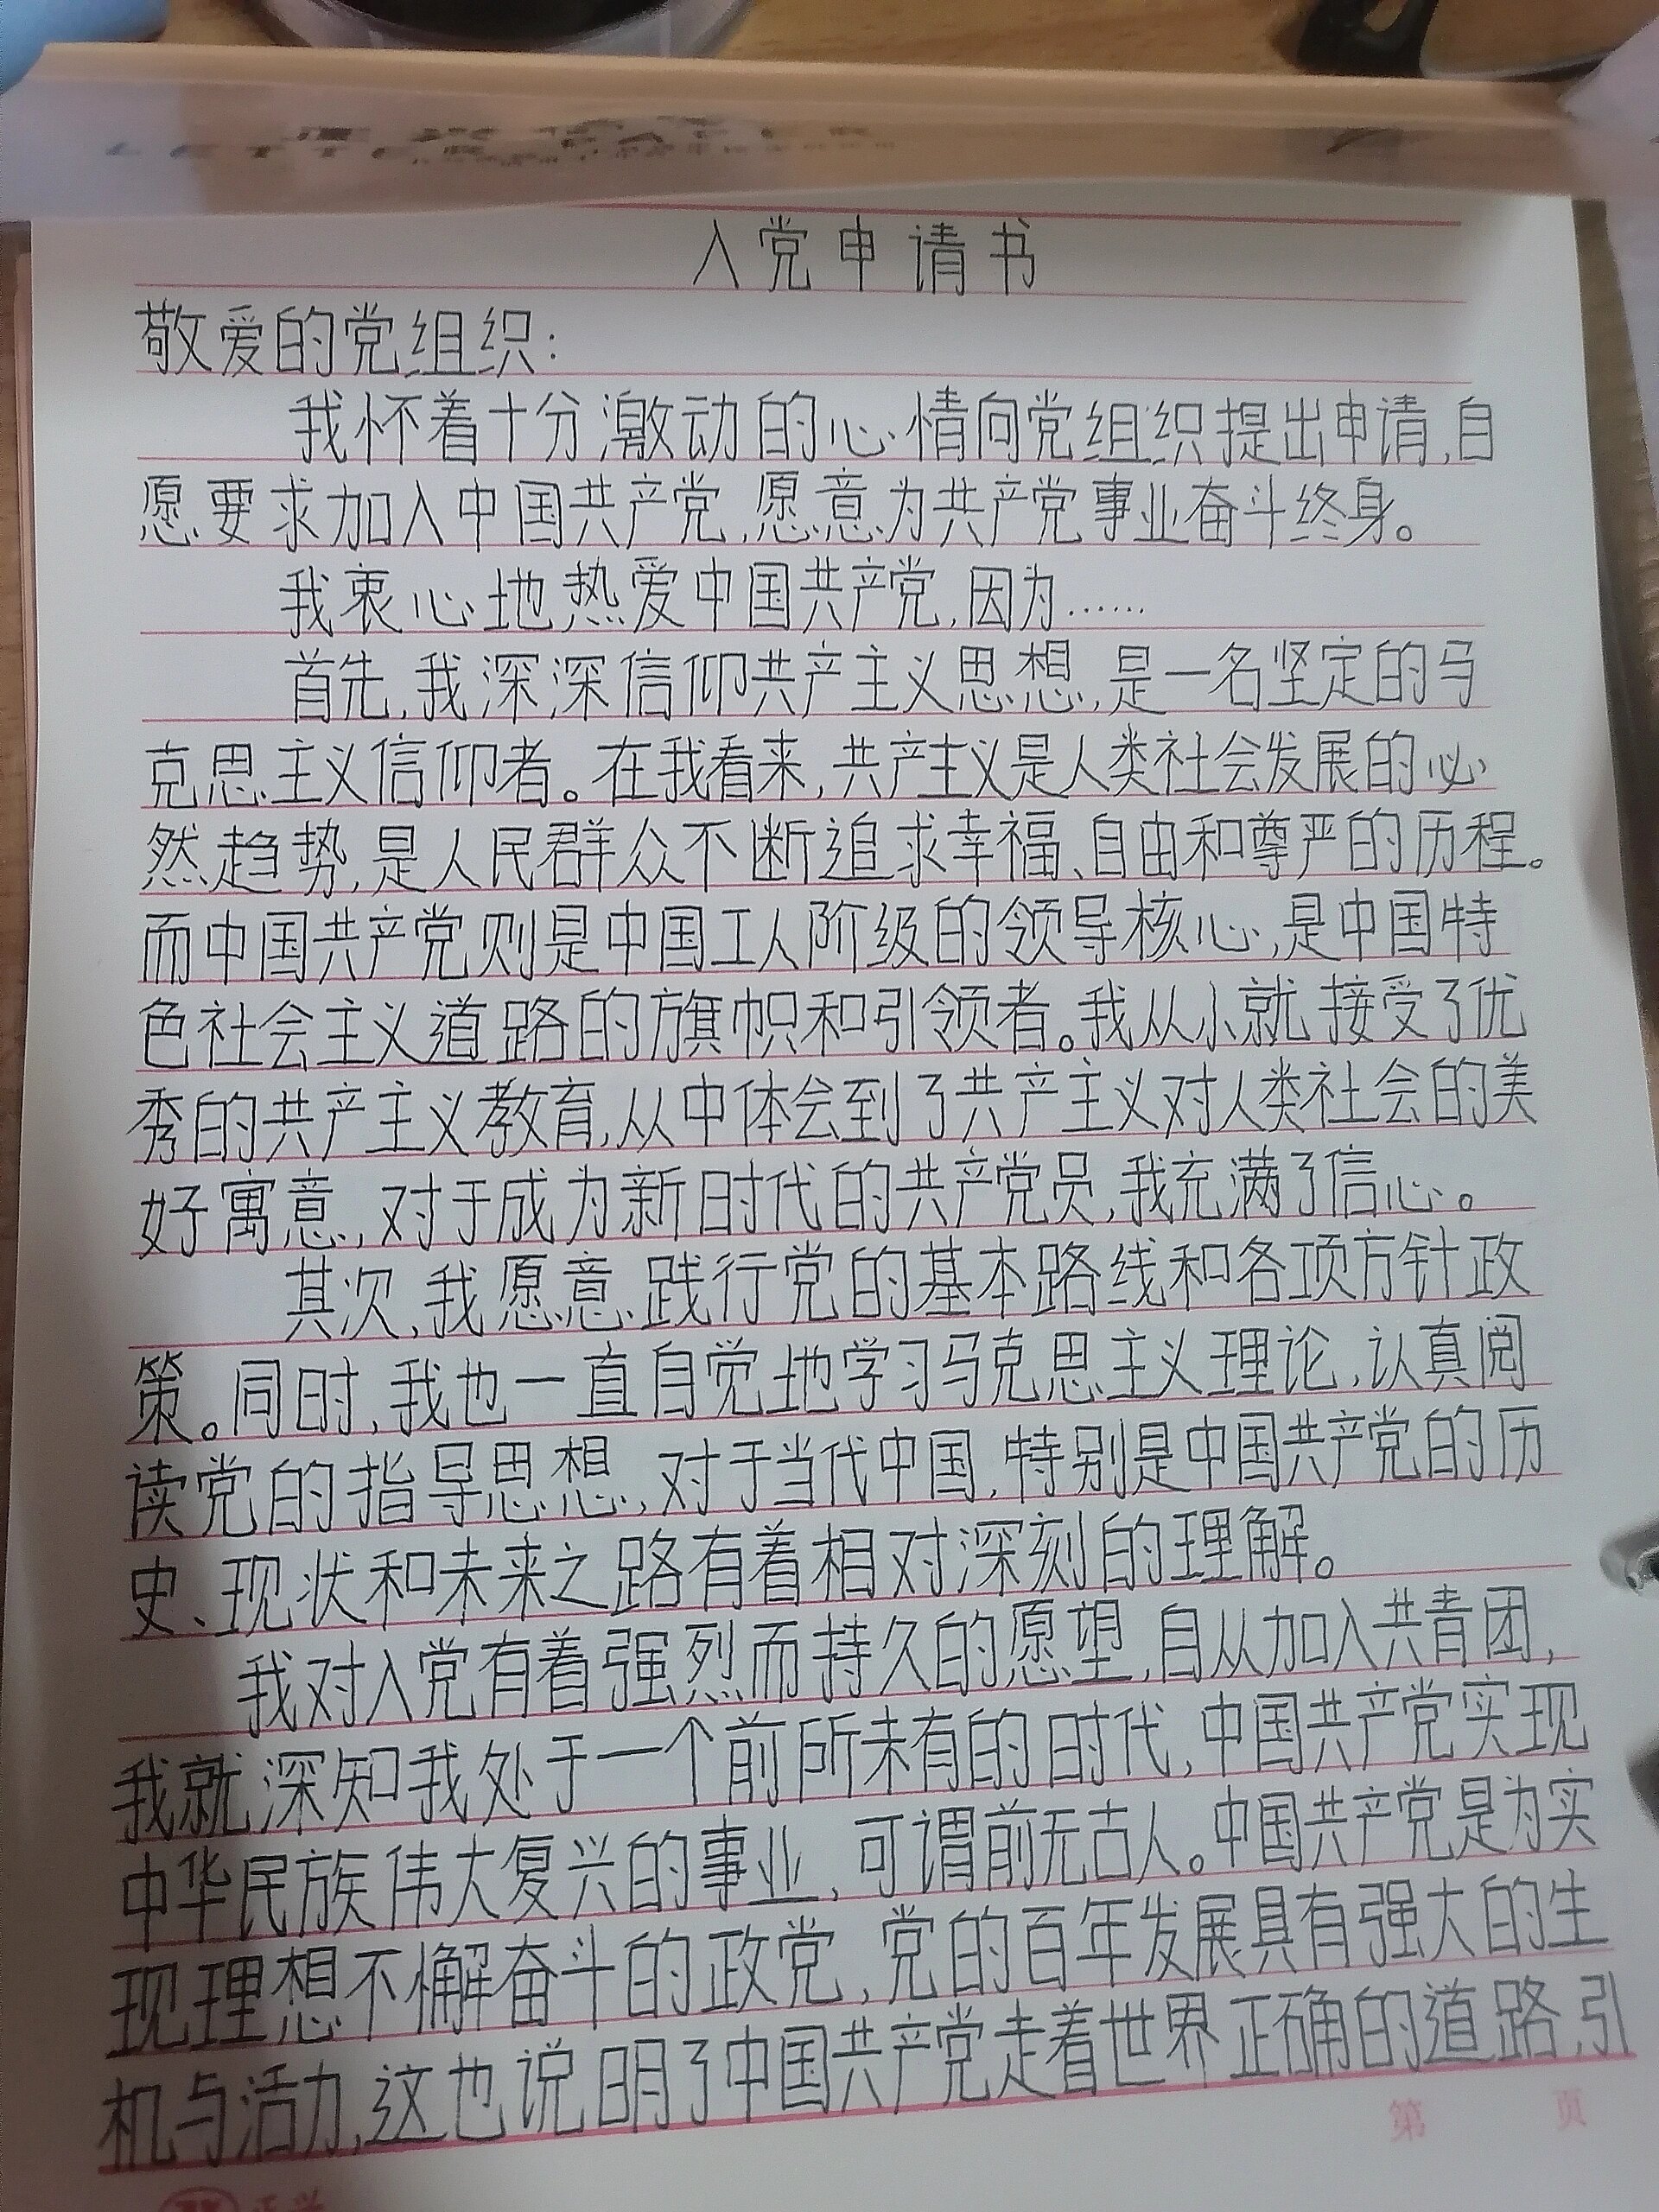 入党申请书
敬爱的党组织:
我怀着十分激动的心情向党组织提出申请,自
愿要求加入中国共产党,愿意为共产党事业奋斗终身。
我衷心地热爱中国共产党,因为……
首先,我深深信仰共产主义思想,是一名坚定的马
克思主义信仰者。在我看来,共产主义是人类社会发展的必
然趋势,是人民群众不断追求幸福、自由和尊严的历程。
而中国共产党则是中国工人阶级的领导核心,是中国特
色社会主义道路的旗帜和引领者。我从小就接受了优
秀的共产主义教育,从中体会到了共产主义对人类社会的美
好寓意,对于成为新时代的共产党员,我充满了信心。
其次,我愿意践行党的基本路线和各项方针政
策。同时,我也一直自觉地学习马克思主义理论,认真阅
读党的指导思想,对于当代中国,特别是中国共产党的历
史、现状和未来之路有着相对深刻的理解。
我对入党有着强烈而持久的愿望,自从加入共青团,
我就深知我处于一个前所未有的时代,中国共产党实现
中华民族伟大复兴的事业,可谓前无古人。中国共产党是为实
现理想不懈奋斗的政党,党的百年发展具有强大的生
机与活力,这也说明了中国共产党走着世界正确的道路,引
第 页